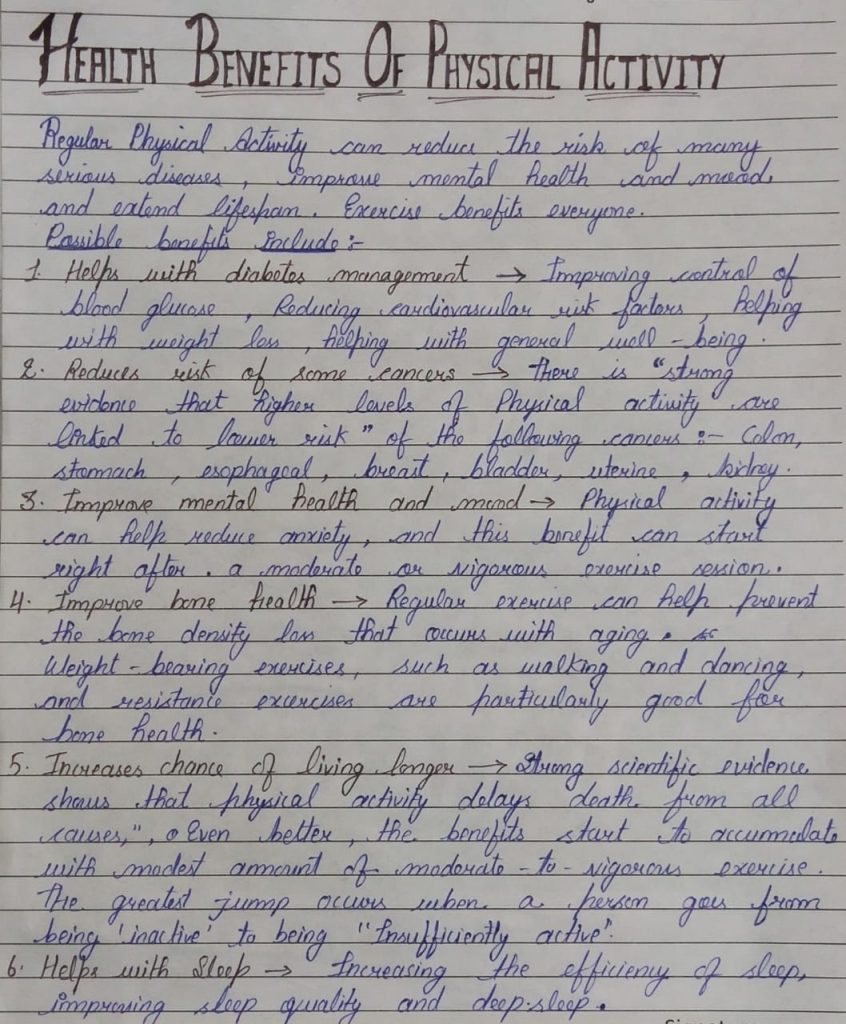 HEALTH BENEFITS OF PHYSICAL ACTIVITY
Regular Physical Activity can reduce the risk of many
serious diseases, improve mental health and mood,
and extend lifespan. Exercise benefits everyone.
Possible benefits include :-
1. Helps with diabetes management → Improving control of
blood glucose, Reducing cardiovascular risk factors, helping
with weight loss, helping with general well-being.
2. Reduces risk of some cancers → There is "strong
evidence that higher levels of Physical activity are
linked to lower risk" of the following cancers :- Colon,
stomach, esophageal, breast, bladder, uterine, kidney.
3. Improve mental health and mood → Physical activity
can help reduce anxiety, and this benefit can start
right after. a moderate or vigorous exercise session.
4. Improve bone health → Regular exercise can help prevent
the bone density loss that occurs with aging.
Weight-bearing exercises, such as walking and dancing,
and resistance excercises are particularly good for
bone health.
5. Increases chance of living longer → Strong scientific evidence
shows that physical activity delays death from all
causes,", Even better, the benefits start to accummulate
with modest amount of moderate-to-vigorous exercise.
The greatest jump occurs when a person goes from
being 'inactive' to being "Insufficiently active".
6. Helps with Sleep → Increasing the efficiency of sleep,
improving sleep quality and deep-sleep.